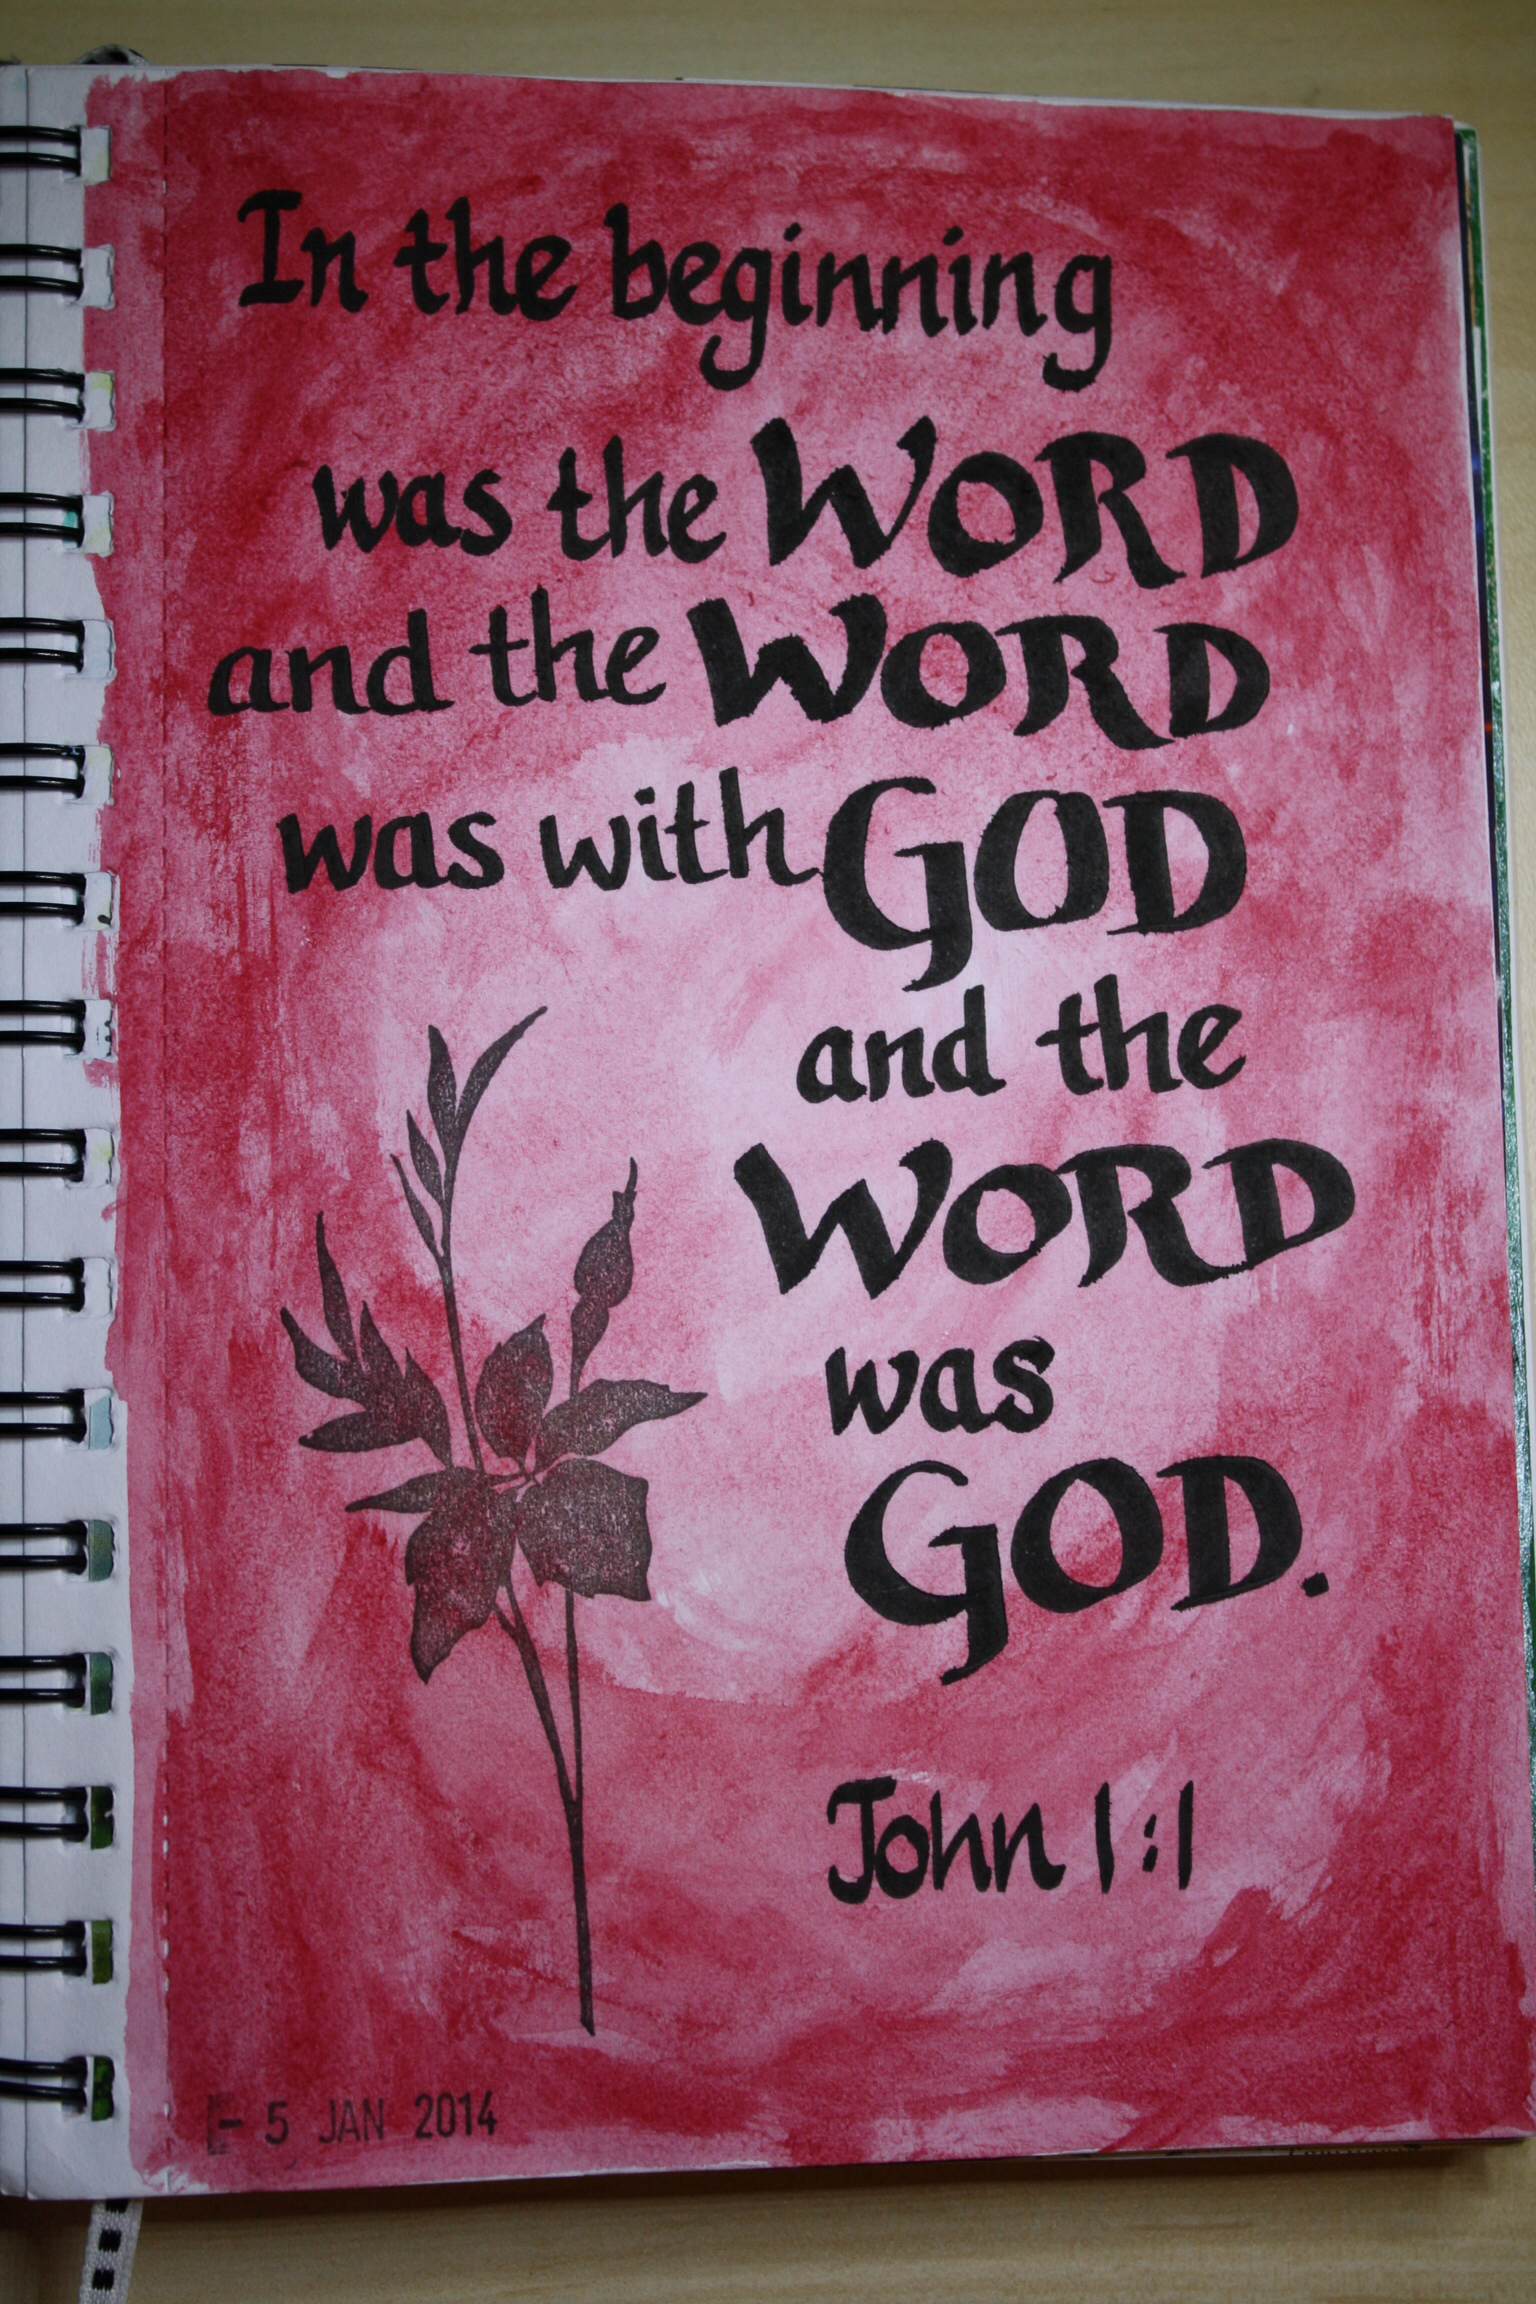 In the beginning
was the WORD
and the WORD
was with GOD
and the
WORD
was
GOD.
John 1:1
- 5 JAN 2014